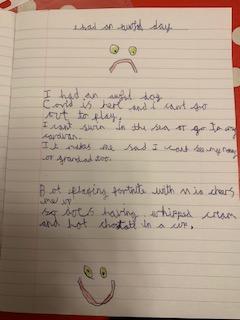 I had an awful day
I had an awful day
Covid is here and i cant go
out to play.
I cant swim in the sea or go to my
caravan.
It makes me sad I cant see my nanny
or grandad too.
But playing fortnite with n is cheers
me up
so does having whipped cream
and hot chocolate in a cup.